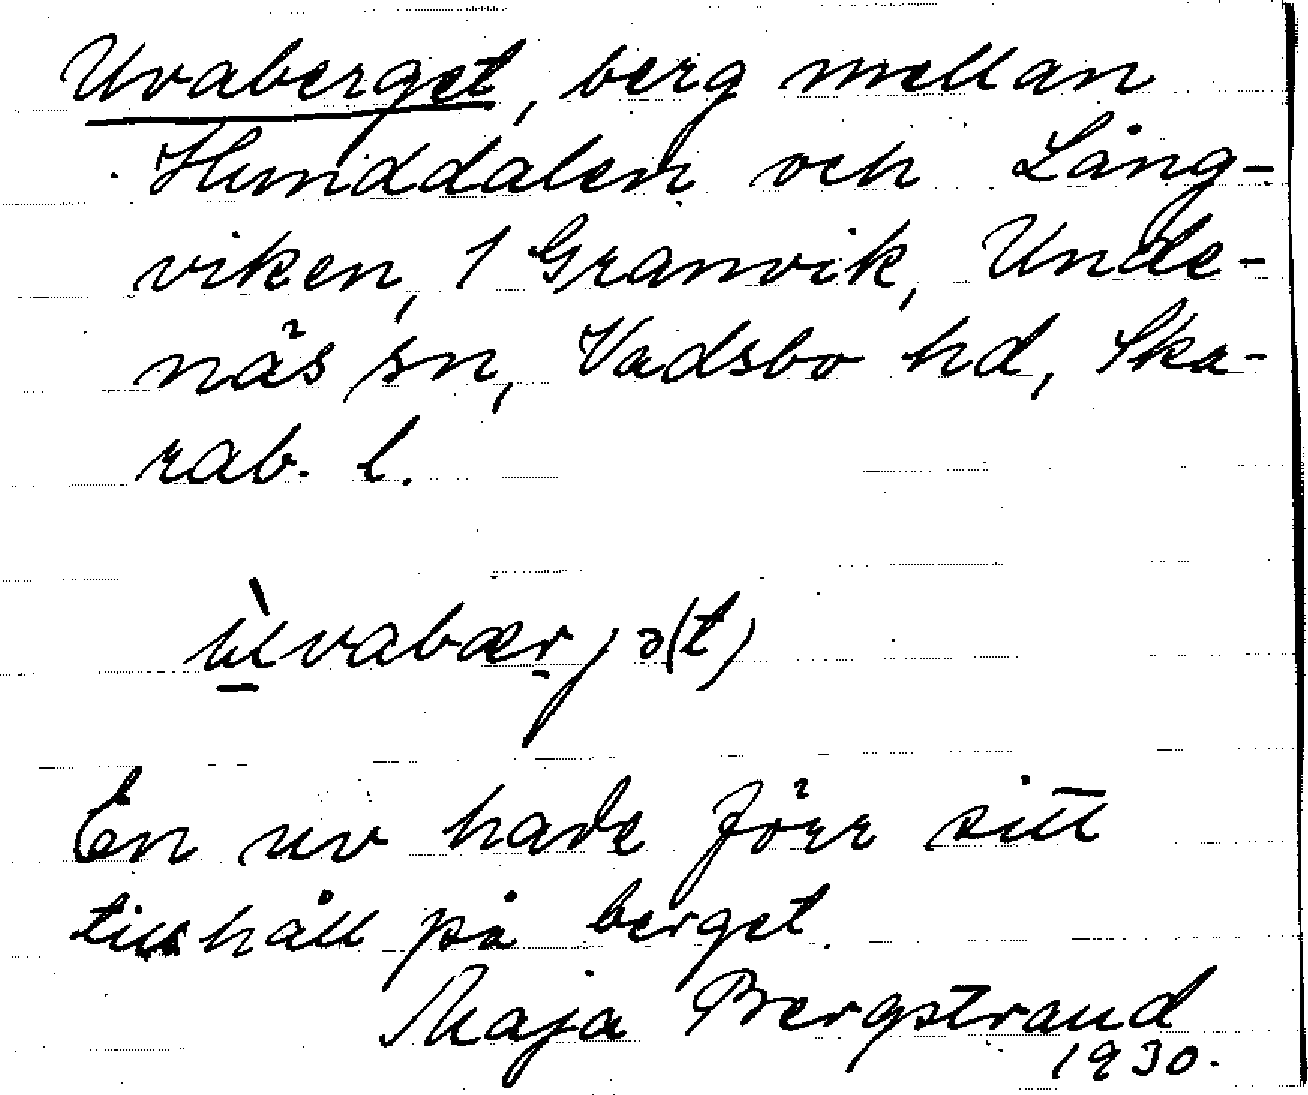 Uvaberget, berg mellan
Hunddalen och Lång-
viken, 1 Granvik, Unde-
näs sn, Vadsbo hd, Ska-
rab. l.
ùvabær̥jə(t)
En uv hade förr sitt
tillhåll på berget.
Maja Bergstrand
1930.